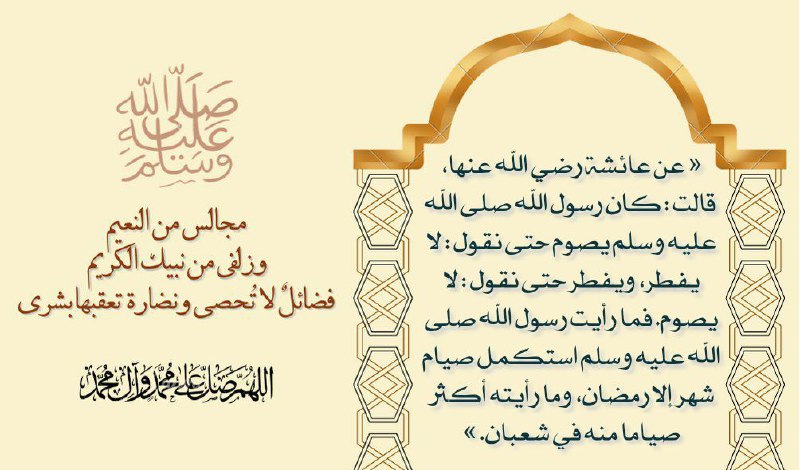 « عن عائشة رضي الله عنها،
قالت: كان رسول الله صلى الله
عليه وسلم يصوم حتى نقول: لا
يفطر، ويفطر حتى نقول: لا
يصوم. فما رأيت رسول الله صلى
الله عليه وسلم استكمل صيام
شهر إلا رمضان، وما رأيته أكثر
صياما منه في شعبان. »
صلى الله
عليه
وسلم
مجالس من النعيم
وزلفى من نبيك الكريم
فضائلٌ لا تُحصى ونضارة تعقبها بشرى
اللهم صل على محمد وآل محمد